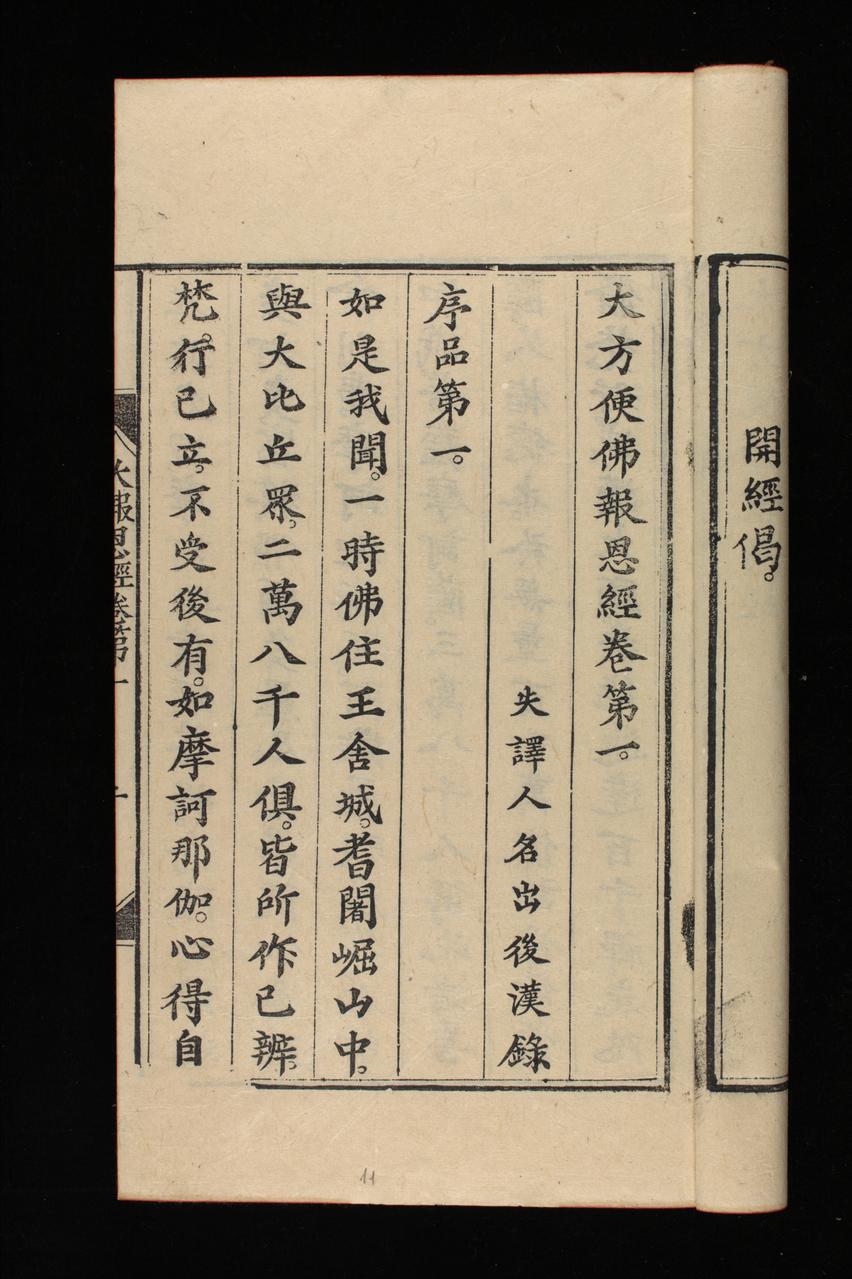 開經偈。
大方便佛報恩經卷第一。
失譯人名出後漢錄
序品第一。
如是我聞。一時佛住王舍城。耆闍崛山中。
與大比丘眾。二萬八千人俱。皆所作已辨。
梵。行已立。不受後有。如摩訶那伽。心得自
大報恩經卷第一
11